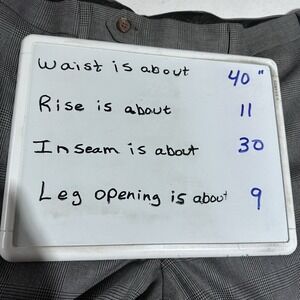 Waist is about 40"
Rise is about 11
Inseam is about 30
Leg opening is about 9